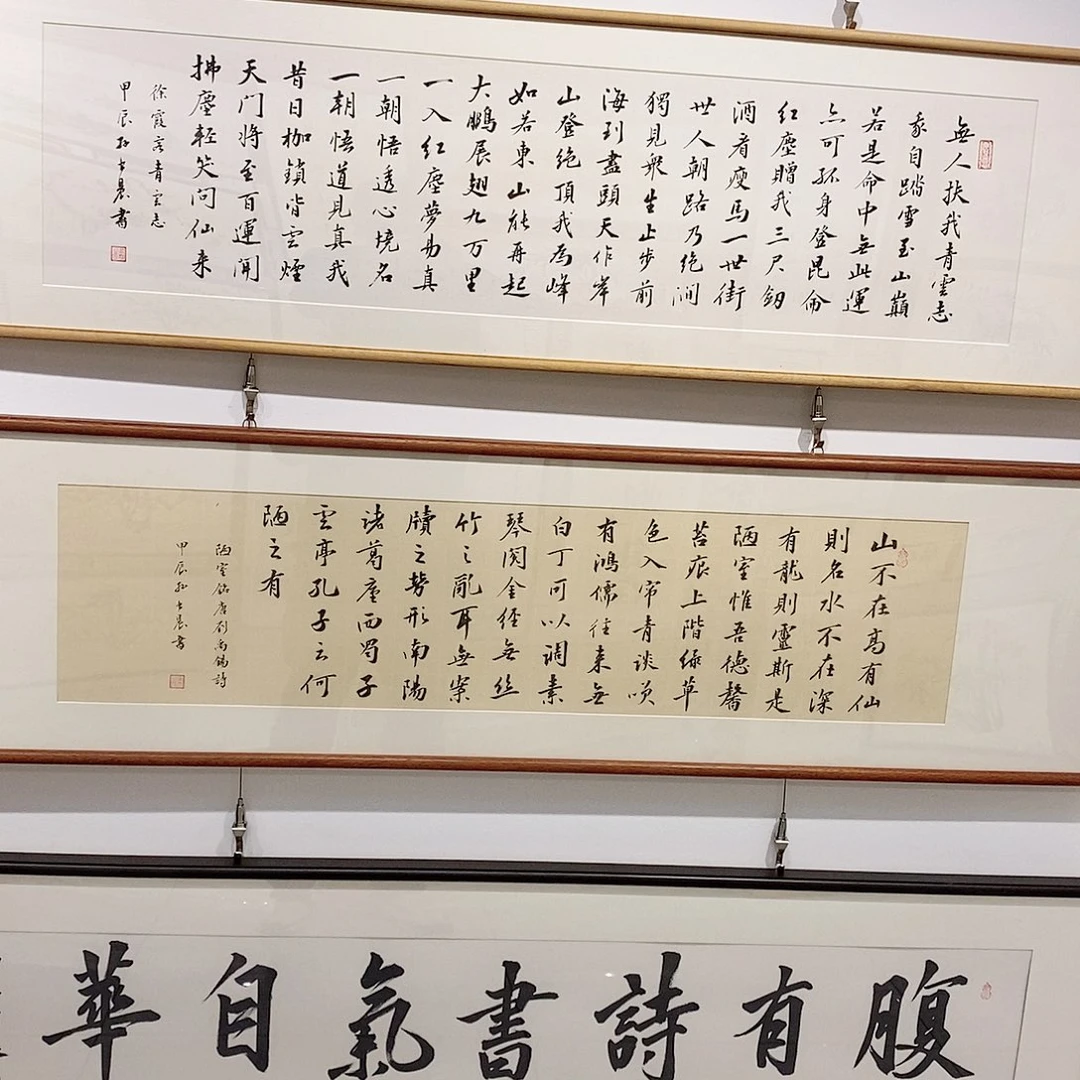 無人扶我青雲志
我自踏雪至山巔
若是命中無此運
亦可孤身登昆侖
紅塵贈我三尺劔
酒肴瘦馬一世街
世人朝路乃绝澗
獨見衆生止步前
海到盡頭天作岸
山登绝頂我為峰
如若東山能再起
大鵬展翅九万里
一入紅塵夢易真
一朝悟透心境名
一朝悟道見真我
昔日枷鎖皆雲煙
天门將至百運開
拂塵輕笑问仙来
徐霞客青雲志
甲辰孙士晨書
山不在高有仙
則名水不在深
有龍則靈斯是
陋室惟吾德馨
苔痕上階緑草
色入帘青谈唉
有鴻儒往来無
白丁可以調素
琴阅金經無丝
竹之亂耳無案
牘之勞形南陽
诸葛廬西蜀子
雲亭孔子云何
陋之有
陋室铭唐刘禹锡詩
甲辰孙士晨書
腹有詩書氣自華